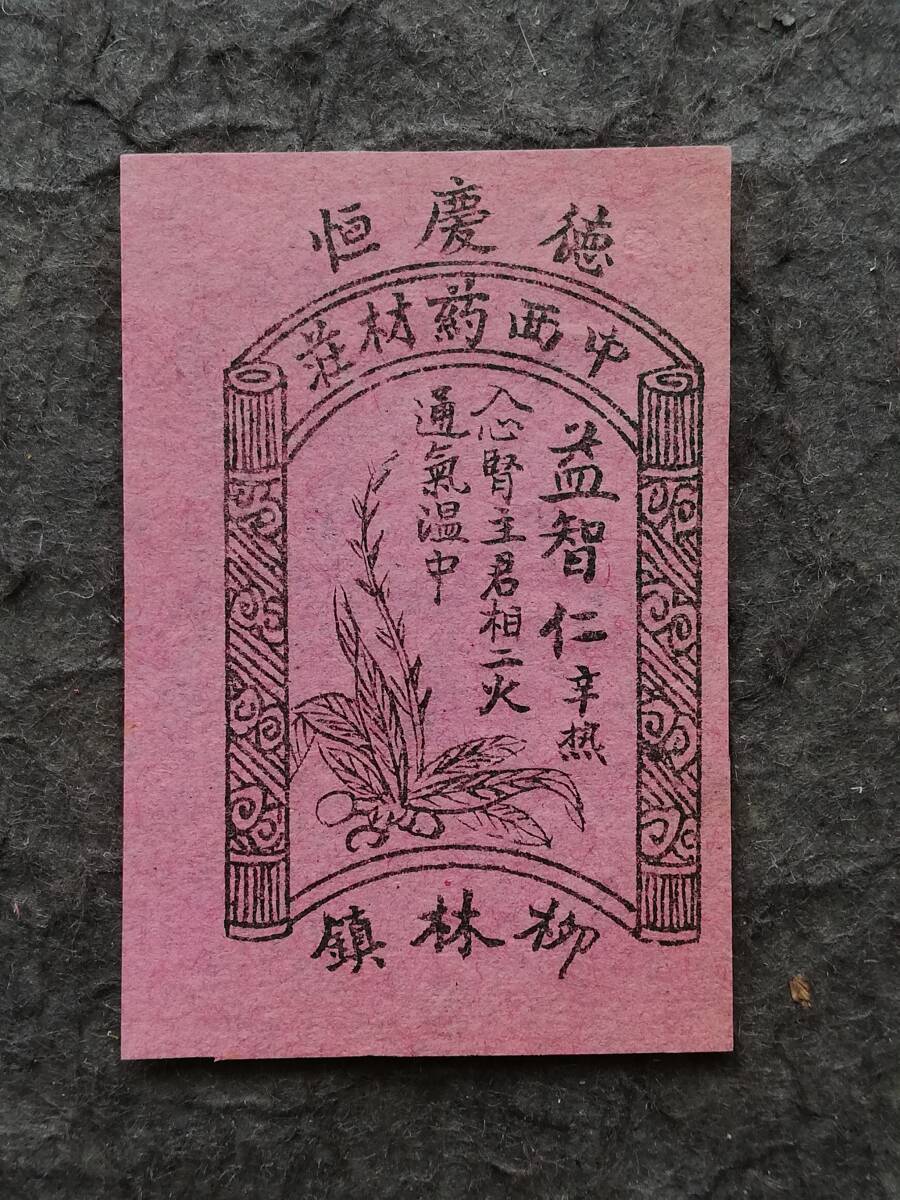 德慶恒
中西葯材莊
益智仁 辛热
入心腎主君相二火
通氣温中
柳林鎮